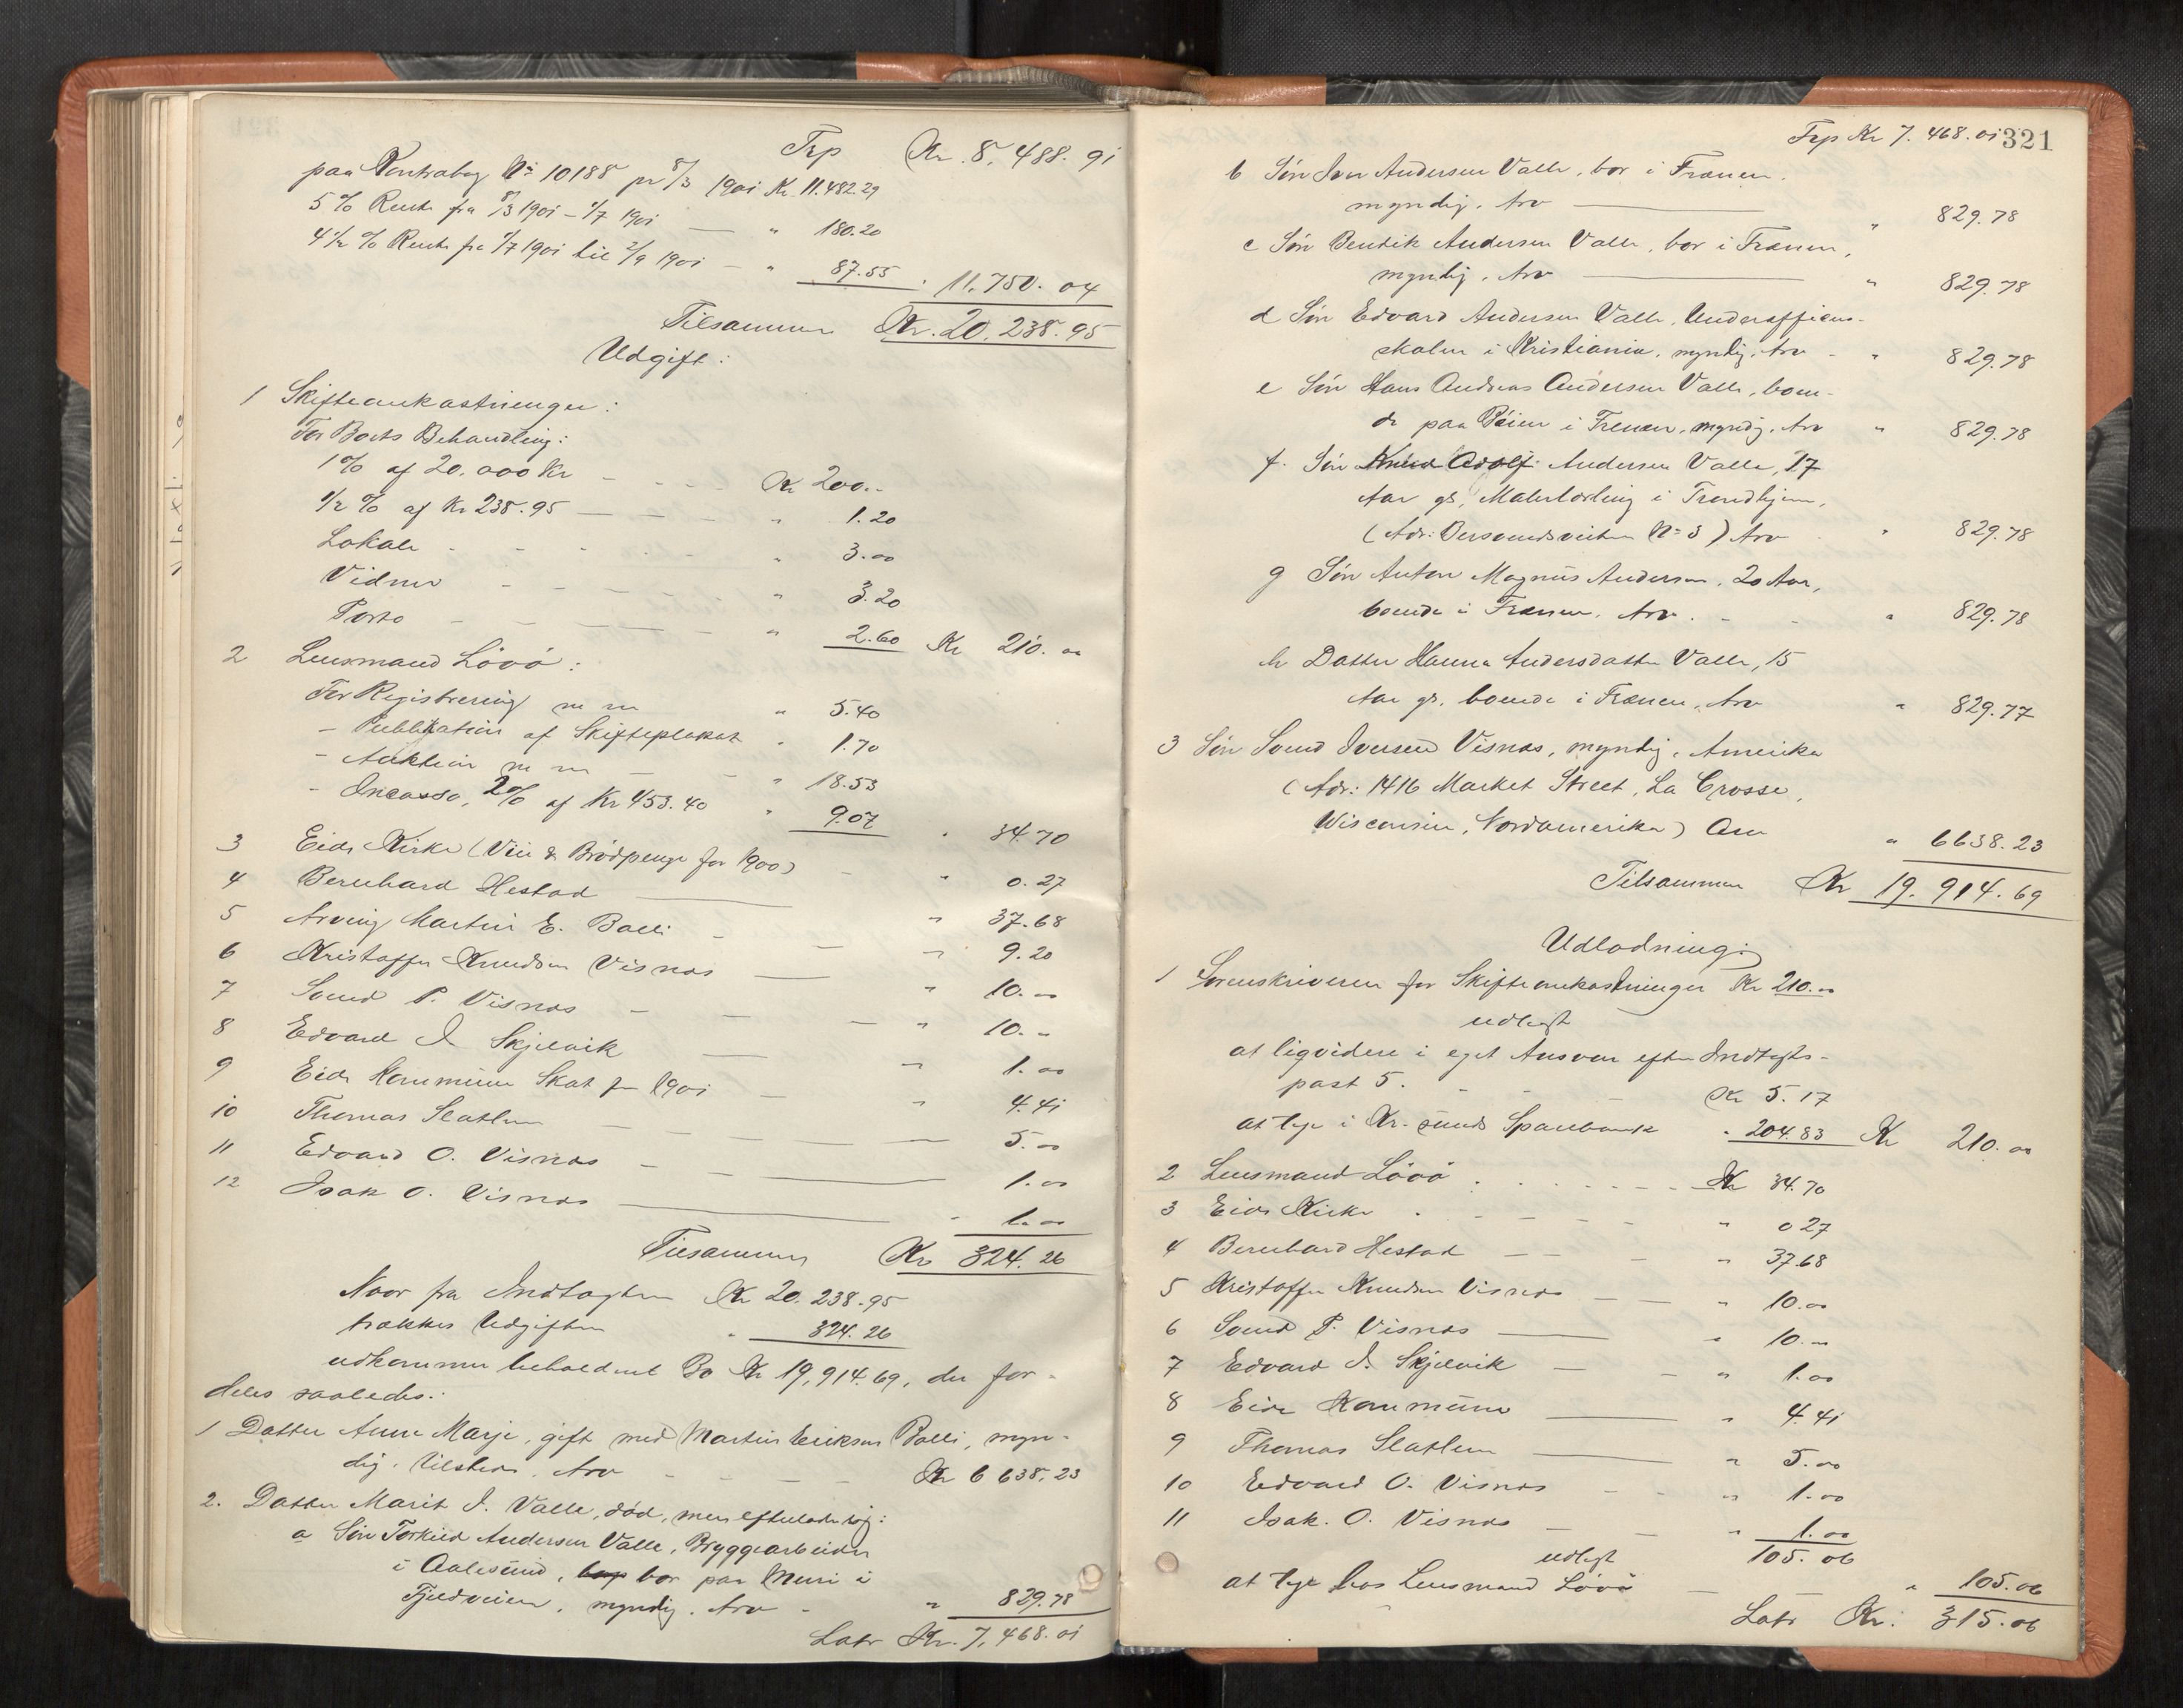 Trp Kr. 8,488.91
paa Kontrabog No 10188 pr 8/3 1901 Kr. 11.482.29
5 % Rente fra 8/3 1901 - 1/7 1901 — " 180.20
4 1/2 % Rente fra 1/7 1901 til 2/9 1901 — " 87.55 " 11.750.04
Tilsammen Kr. 20.238.95
Udgift:
1 Skifteomkostninger:
For Boets Behandling:
1% af 20.000 Kr - - - - Kr 200.-
1/2 % af Kr 238.95 — — - " 1.20
Lokale - - - - " 3.00
Vidner - - - - " 3.20
Porto - — — - " 2.60 Kr 210.00
2 Lensmand Lövö:
For Registrering m m " 5.40
- Publikation af Skifteplakat " 1.70
- Auktion m m — - " 18.53
- Incasso, 2% af Kr 453.40 " 9.07 " 34.70
3 Eide Kirke (Vin & Brödpenge for 1900) - " 0.27
4 Bernhard Hestad — " 37.68
5 Arving Martin E. Bolli - — " 9.20
6 Kristoffer Knudsen Visnes — " 10.-
7 Sivert P. Visnes - — — " 10.-
8 Edvard I. Skjelvik — " 1.00
9 Eide Kommune Skat for 1901 — " 4.41
10 Thomas Slatlem — — — 5.00
11 Edvard O. Visnes - — 1.00
12 Isak O. Visnes — " 1.00
Tilsammen Kr 324.26
Naar fra Indtægten Kr 20.238.95
trækkes Udgiften " 324.26
udkommer beholdent Bo Kr 19,914.69, der for-
deles saaledes:
1 Datter Anne Marje, gift med Martin Eriksen Bolli, myn-
dig. tilstede. Arv - - — — Kr 6 638.23
2. Datter Marit I. Valle, död, men efterlod sig:
a Sön Torkild Andersen Valle, Bryggearbeider
i Aalesund, bor paa Muri i
Fjeldveien, myndig. Arv - " 829.78
Latr Kr. 7,468.01
Trp Kr 7.468.01 321
b Sön Iver Andersen Valle, bor i Frænen.
myndig. Arv — " 829.78
c Sön Bendik Andersen Valle, bor i Frænen,
myndig. Arv — " 829.78
d Sön Edvard Andersen Valle, Underofficers-
skolen i Kristiania, myndig. Arv - " 829.78
e Sön Hans Andreas Andersen Valle, boen-
de paa Böien i Frænen, myndig. Arv " 829.78
f. Sön Knud Adolf Andersen Valle, 17
Aar gl, Malerlærling i Trondhjem,
(Adr: No 3) Arv " 829.78
g Sön Anton Magnus Andersen, 20 Aar,
boende i Frænen. Arv. - - " 829.78
h Datter Hanna Andersdatter Valle, 15
Aar gl. boende i Frænen, Arv " 829.77
3 Sön Sivert Iversen Visnes, myndig, Amerika
(Adr: 1416 Market Street, La Crosse,
Wisconsin, Nordamerika) Arv " 6638.23
Tilsammen Kr 19.914.69
Udlodning:
1 Sorenskriveren for Skifteomkostninger Kr 210.00
udlagt
at liqvidere i eget Ansvar efter Indtægts-
post 5. - - - Kr 5.17
at tage i Kr.sunds Sparebank " 204.83 Kr 210.00
2 Lensmand Lövö - - - - Kr 34.70
3 Eide Kirke - — — - " 0 27
4 Bernhard Hestad — — " 37.68
5 Kristoffer Knudsen Visnes — — " 10.00
6 Sivert P. Visnes — " 10.-
7 Edvard I. Skjelvik — - " 1.00
8 Eide Kommune — " 4.41
9 Thomas Slatlem — " 5.00
10 Edvard O. Visnes - - " 1.00
11 Isak. O. Visnes — — " 1.00
udlagt 105.06
at tage hos Lensmand Lövö — — " 105.06
Latr Kr. 315.06